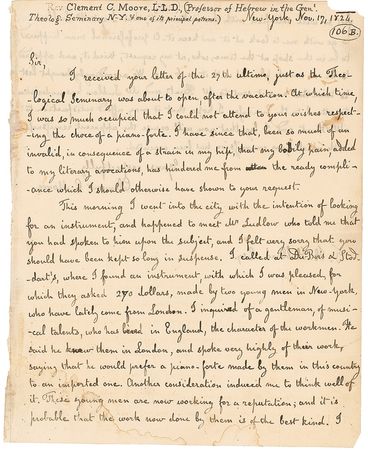 Rev Clement C. Moore, L.L.D, (Professor of Hebrew in the Genl.
Theolog. Seminary N-Y. & one of its principal patrons.) New-York, Nov. 17, 1824.
106 B.
Sir,
I received your letter of the 27th ultimo, just as the Theo-
logical Seminary was about to open after the vacation. At which time,
I was so much occupied that I could not attend to your wishes respect-
ing the choice of a piano-forte. I have since that, been so much of an
invalid, in consequence of a strain in my hip, that my bodily pain, added
to my literary avocations, has hindered me from the ready compli-
ance which I should otherwise have shown to your request.
This morning I went into the city with the intention of looking
for an instrument, and happened to meet Mr Ludlow who told me that
you had spoken to him upon the subject, and I felt very sorry that you
should have been kept so long in suspense. I called at Du Bois & Stod-
dart's, where I found an instrument, with which I was pleased, for
which they asked 270 dollars, made by two young men in New-York,
who have lately come from London. I inquired of a gentleman, of musi-
cal talents, who has lived in England, the character of the workmen. He
said he knew them in London, and spoke very highly of their work,
saying that he would prefer a piano-forte made by them in this country
to an imported one. Another consideration induced me to think well of
it. These young men are now working for a reputation; and it is
probable that the work now done by them is of the best kind. I